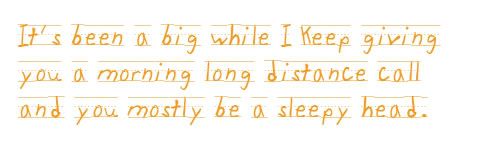 It's been a big while I Keep giving
you a morning long distance call
and you mostly be a sleepy head.